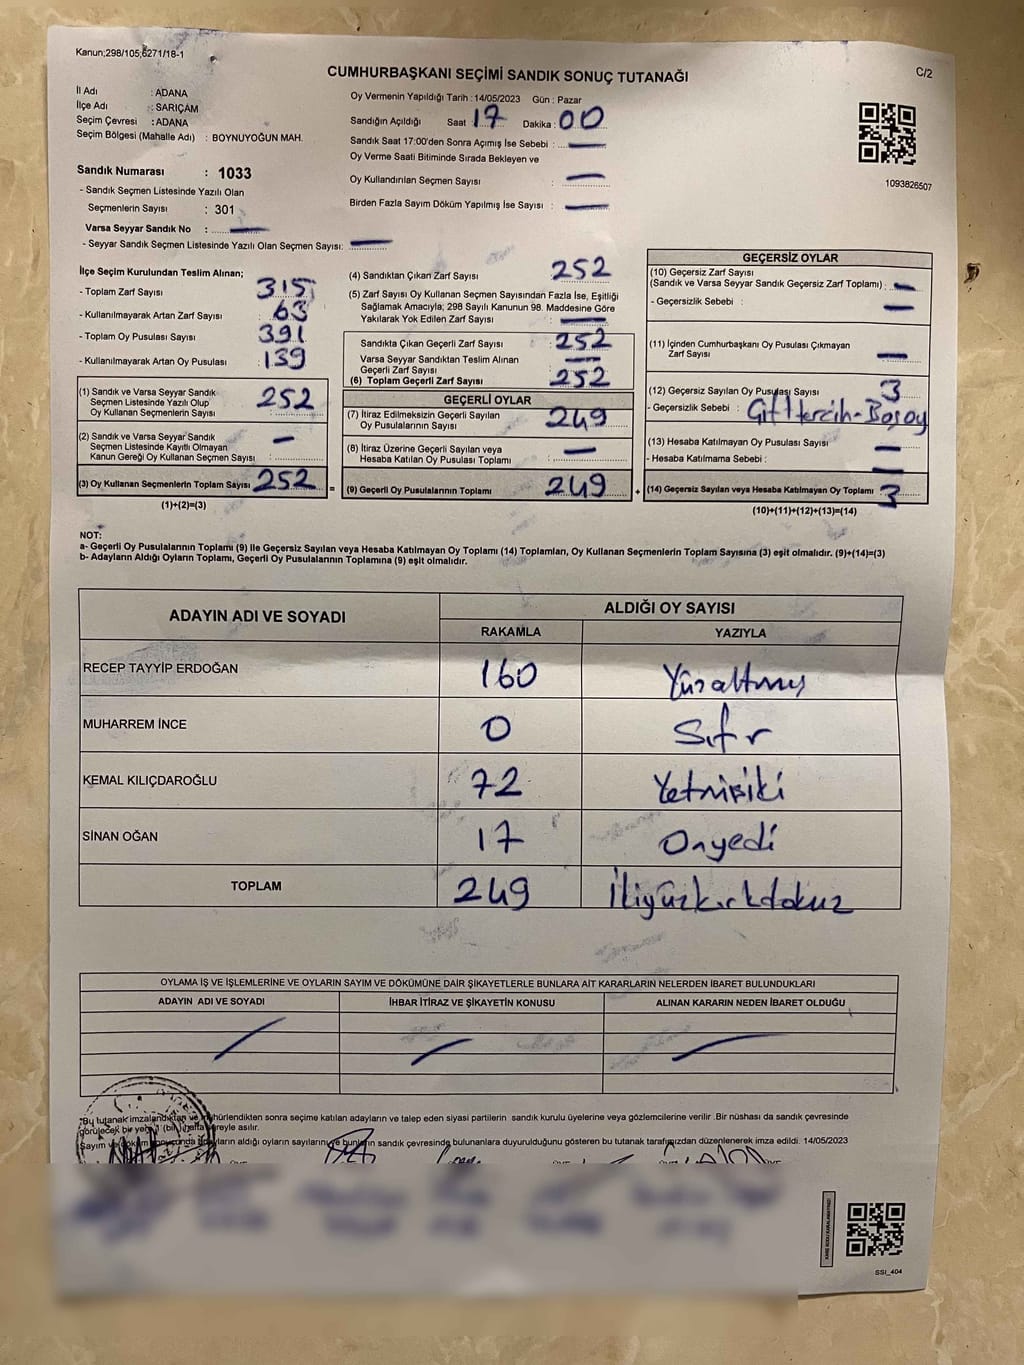 Kanun;298/105;6271/18-1
C/2
CUMHURBAŞKANI SEÇİMİ SANDIK SONUÇ TUTANAĞI
İl Adı : ADANA
İlçe Adı : SARIÇAM
Seçim Çevresi : ADANA
Seçim Bölgesi (Mahalle Adı) : BOYNUYOĞUN MAH.
Sandık Numarası : 1033
- Sandık Seçmen Listesinde Yazılı Olan
Seçmenlerin Sayısı : 301
Varsa Seyyar Sandık No :
- Seyyar Sandık Seçmen Listesinde Yazılı Olan Seçmen Sayısı:
Oy Vermenin Yapıldığı Tarih : 14/05/2023 Gün : Pazar
Sandığın Açıldığı Saat : 17 Dakika : 00
Sandık Saat 17:00'den Sonra Açımış İse Sebebi :
Oy Verme Saati Bitiminde Sırada Bekleyen ve
Oy Kullandırılan Seçmen Sayısı :
Birden Fazla Sayım Döküm Yapılmış İse Sayısı :
1093826507
İlçe Seçim Kurulundan Teslim Alınan;
- Toplam Zarf Sayısı : 315
- Kullanılmayarak Artan Zarf Sayısı : 63
- Toplam Oy Pusulası Sayısı : 391
- Kullanılmayarak Artan Oy Pusulası : 139
(1) Sandık ve Varsa Seyyar Sandık
Seçmen Listesinde Yazılı Olup
Oy Kullanan Seçmenlerin Sayısı : 252
(2) Sandık ve Varsa Seyyar Sandık
Seçmen Listesinde Kayıtlı Olmayan
Kanun Gereği Oy Kullanan Seçmen Sayısı : –
(3) Oy Kullanan Seçmenlerin Toplam Sayısı 252 =
(1)+(2)=(3)
(4) Sandıktan Çıkan Zarf Sayısı : 252
(5) Zarf Sayısı Oy Kullanan Seçmen Sayısından Fazla İse, Eşitliği
Sağlamak Amacıyla; 298 Sayılı Kanunun 98. Maddesine Göre
Yakılarak Yok Edilen Zarf Sayısı :
Sandıkta Çıkan Geçerli Zarf Sayısı : 252
Varsa Seyyar Sandıktan Teslim Alınan
Geçerli Zarf Sayısı :
(6) Toplam Geçerli Zarf Sayısı : 252
GEÇERLİ OYLAR
(7) İtiraz Edilmeksizin Geçerli Sayılan
Oy Pusulalarının Sayısı : 249
(8) İtiraz Üzerine Geçerli Sayılan veya
Hesaba Katılan Oy Pusulası Toplamı : –
(9) Geçerli Oy Pusulalarının Toplamı 249 +
GEÇERSİZ OYLAR
(10) Geçersiz Zarf Sayısı
(Sandık ve Varsa Seyyar Sandık Geçersiz Zarf Toplamı) : –
- Geçersizlik Sebebi : –
(11) İçinden Cumhurbaşkanı Oy Pusulası Çıkmayan
Zarf Sayısı –
(12) Geçersiz Sayılan Oy Pusulası Sayısı 3
- Geçersizlik Sebebi : Çift tercih-Boş oy
(13) Hesaba Katılmayan Oy Pusulası Sayısı –
- Hesaba Katılmama Sebebi : –
(14) Geçersiz Sayılan veya Hesaba Katılmayan Oy Toplamı : 3
(10)+(11)+(12)+(13)=(14)
NOT:
a- Geçerli Oy Pusulalarının Toplamı (9) ile Geçersiz Sayılan veya Hesaba Katılmayan Oy Toplamı (14) Toplamları, Oy Kullanan Seçmenlerin Toplam Sayısına (3) eşit olmalıdır. (9)+(14)=(3)
b- Adayların Aldığı Oyların Toplamı, Geçerli Oy Pusulalarının Toplamına (9) eşit olmalıdır.
ADAYIN ADI VE SOYADI
ALDIĞI OY SAYISI
RAKAMLA YAZIYLA
RECEP TAYYİP ERDOĞAN 160 Yüzaltmış
MUHARREM İNCE 0 Sıfır
KEMAL KILIÇDAROĞLU 72 Yetmişiki
SİNAN OĞAN 17 Onyedi
TOPLAM 249 İkiyüzkırkdokuz
OYLAMA İŞ VE İŞLEMLERİNE VE OYLARIN SAYIM VE DÖKÜMÜNE DAİR ŞİKAYETLERLE BUNLARA AİT KARARLARIN NELERDEN İBARET BULUNDUKLARI
ADAYIN ADI VE SOYADI İHBAR İTİRAZ VE ŞİKAYETİN KONUSU ALINAN KARARIN NEDEN İBARET OLDUĞU
"Bu tutanak imzalandıktan ve mühürlendikten sonra seçime katılan adayların ve talep eden siyasi partilerin sandık kurulu üyelerine veya gözlemcilerine verilir .Bir nüshası da sandık çevresinde
görülecek bir yere 1 (bir) hafta süreyle asılır.
Sayım ve döküm sonucunda adayların aldığı oyların sayılarını ve bunların sandık çevresinde bulunanlara duyurulduğunu gösteren bu tutanak tarafımızdan düzenlenerek imza edildi. 14/05/2023
SSI_404